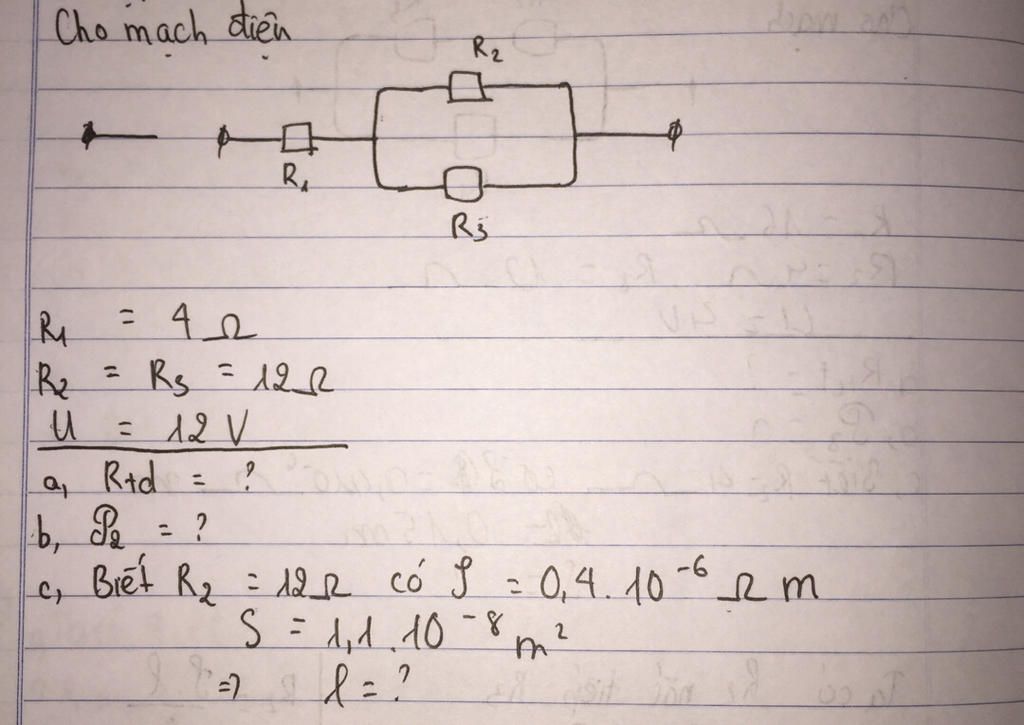 Cho mạch điện
R2
R1
R3
R1 = 4 Ω
R2 = R3 = 12 Ω
U = 12 V
a, Rtd = ?
b, P2 = ?
c, Biết R2 = 12 Ω có ρ = 0,4 . 10^-6 Ω m
S = 1,1 . 10^-8 m²
=> l = ?